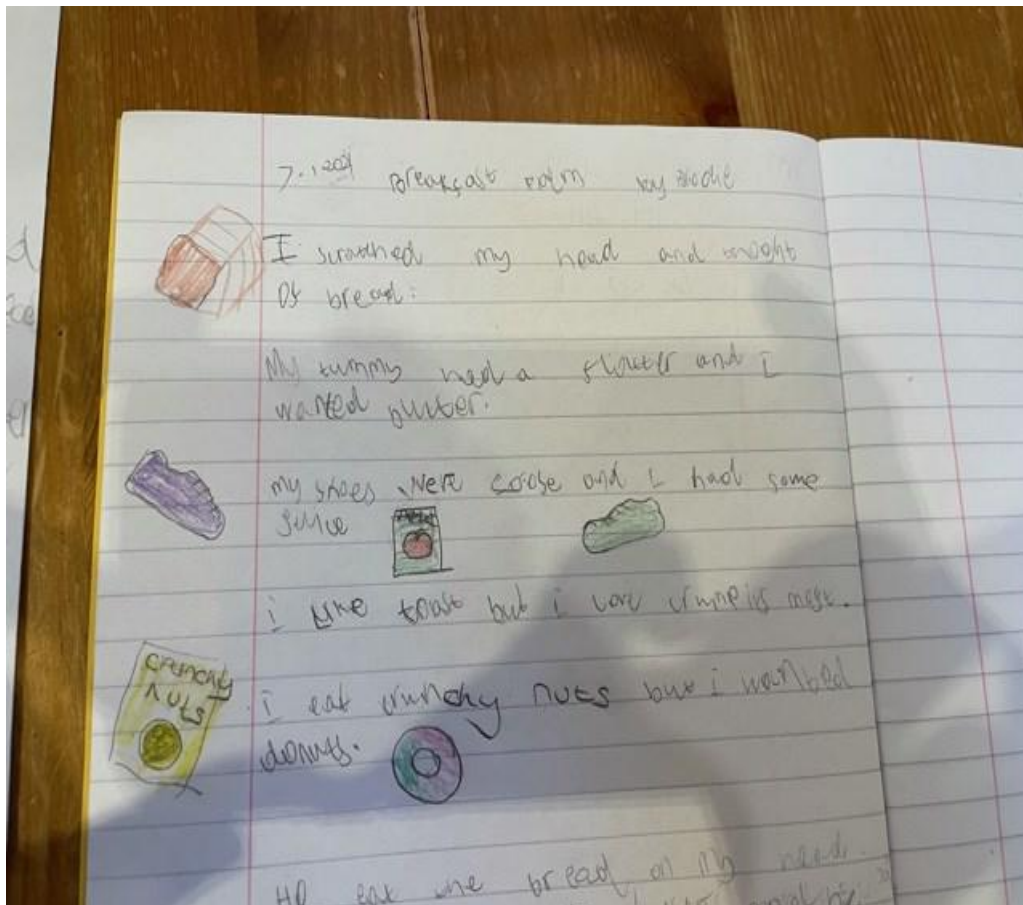 Breakfast by
I scratched my head and
Of bread.
My tummy had a flutter and I
wanted butter.
my shoes were and I had some
juice
i like toast but i love most.
CRUNCHY
NUTS
i eat crunchy nuts but i wanted
donuts.
eat the bread on my head